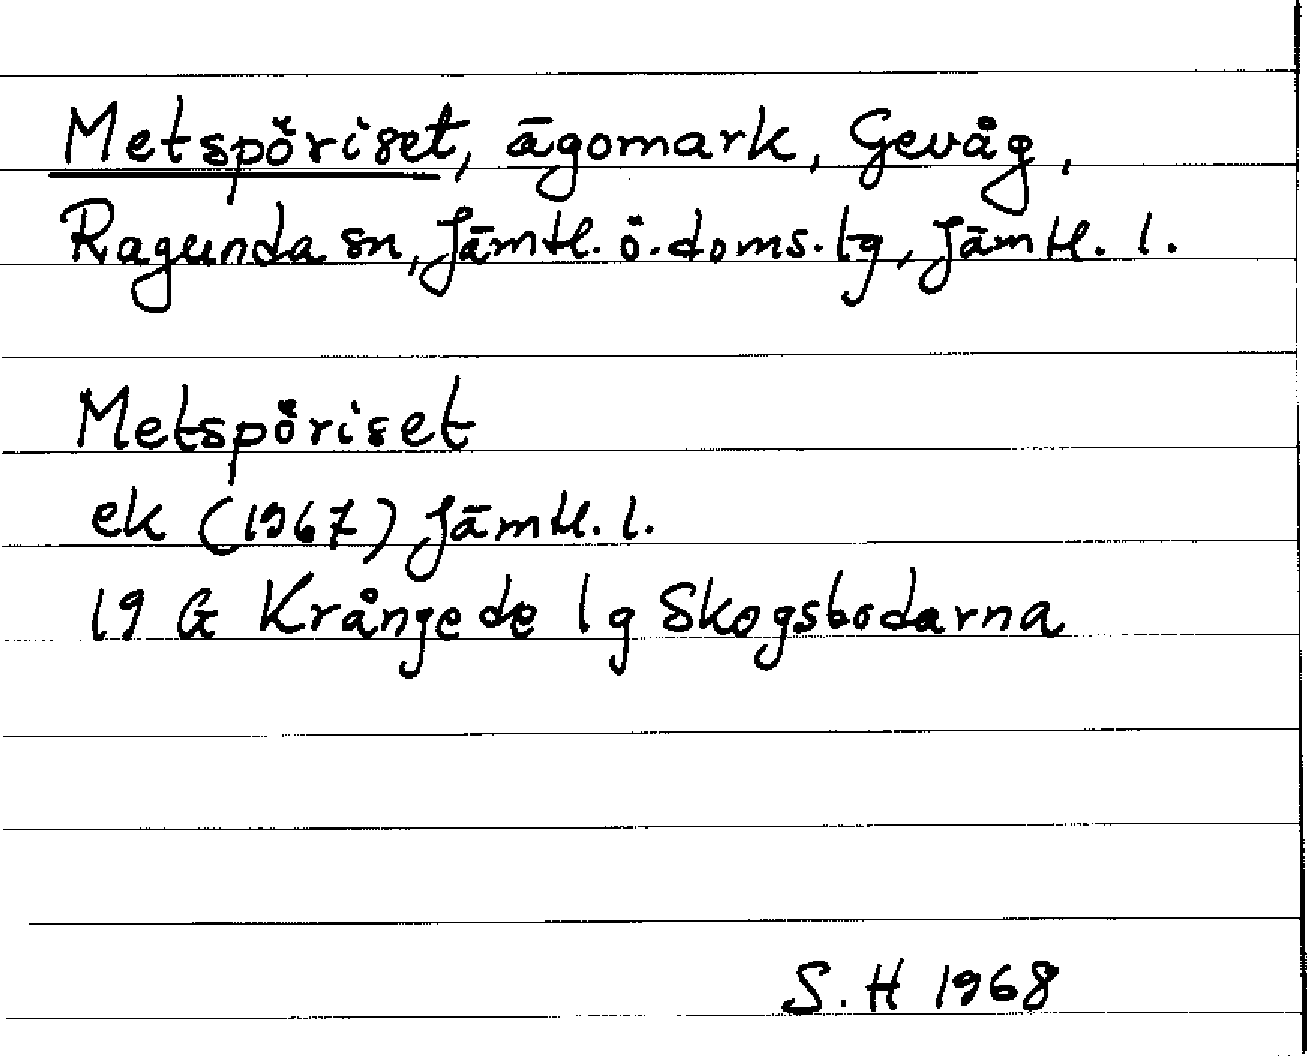 Metspöriset, ägomark, Gevåg,
Ragunda sn, Jämtl. ö. doms. tg, Jämtl. l.
Metspöriset
ek (1967) Jämtl. l.
19 G Krångede 1g Skogsbodarna
S. H 1968